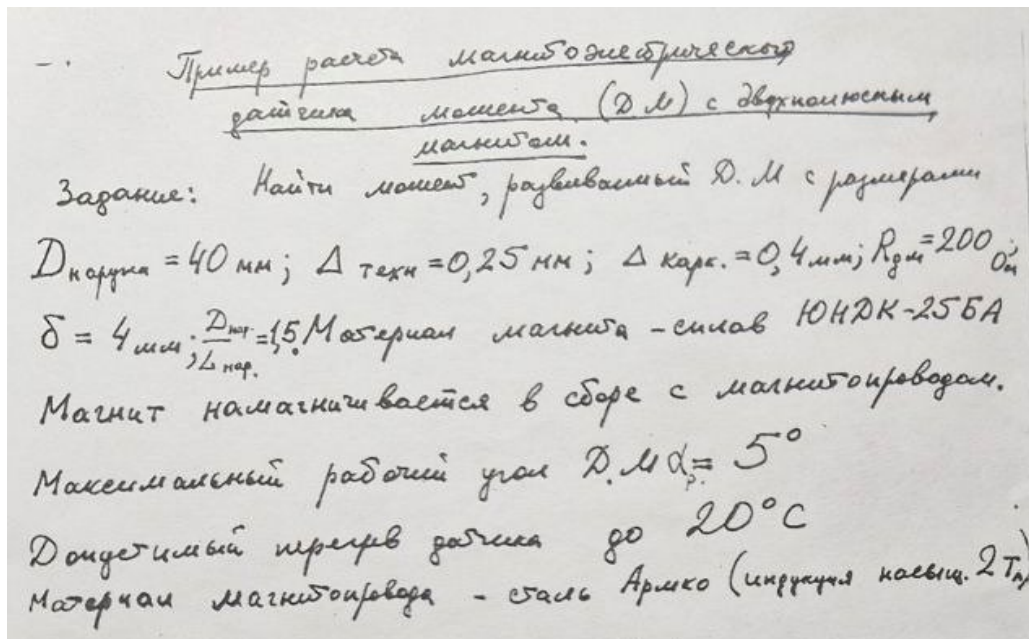 Пример расчета магнитоэлектрического
датчика момента (ДМ) с двухполюсным
магнитом.
Задание: Найти момент, развиваемый Д.М с размерами
Dнаружн = 40 мм; Δ техн = 0,25 мм; Δ карк. = 0,4 мм; Rдм = 200 Ом;
δ = 4 мм; Dнар./Lнар. = 1,5. Материал магнита - сплав ЮНДК-25БА
Магнит намагничивается в сборе с магнитопроводом.
Максимальный рабочий угол Д.М αр. = 5°
Допустимый перегрев датчика до 20°С
Материал магнитопровода - сталь Армко (индукция насыщ. 2 Тл)